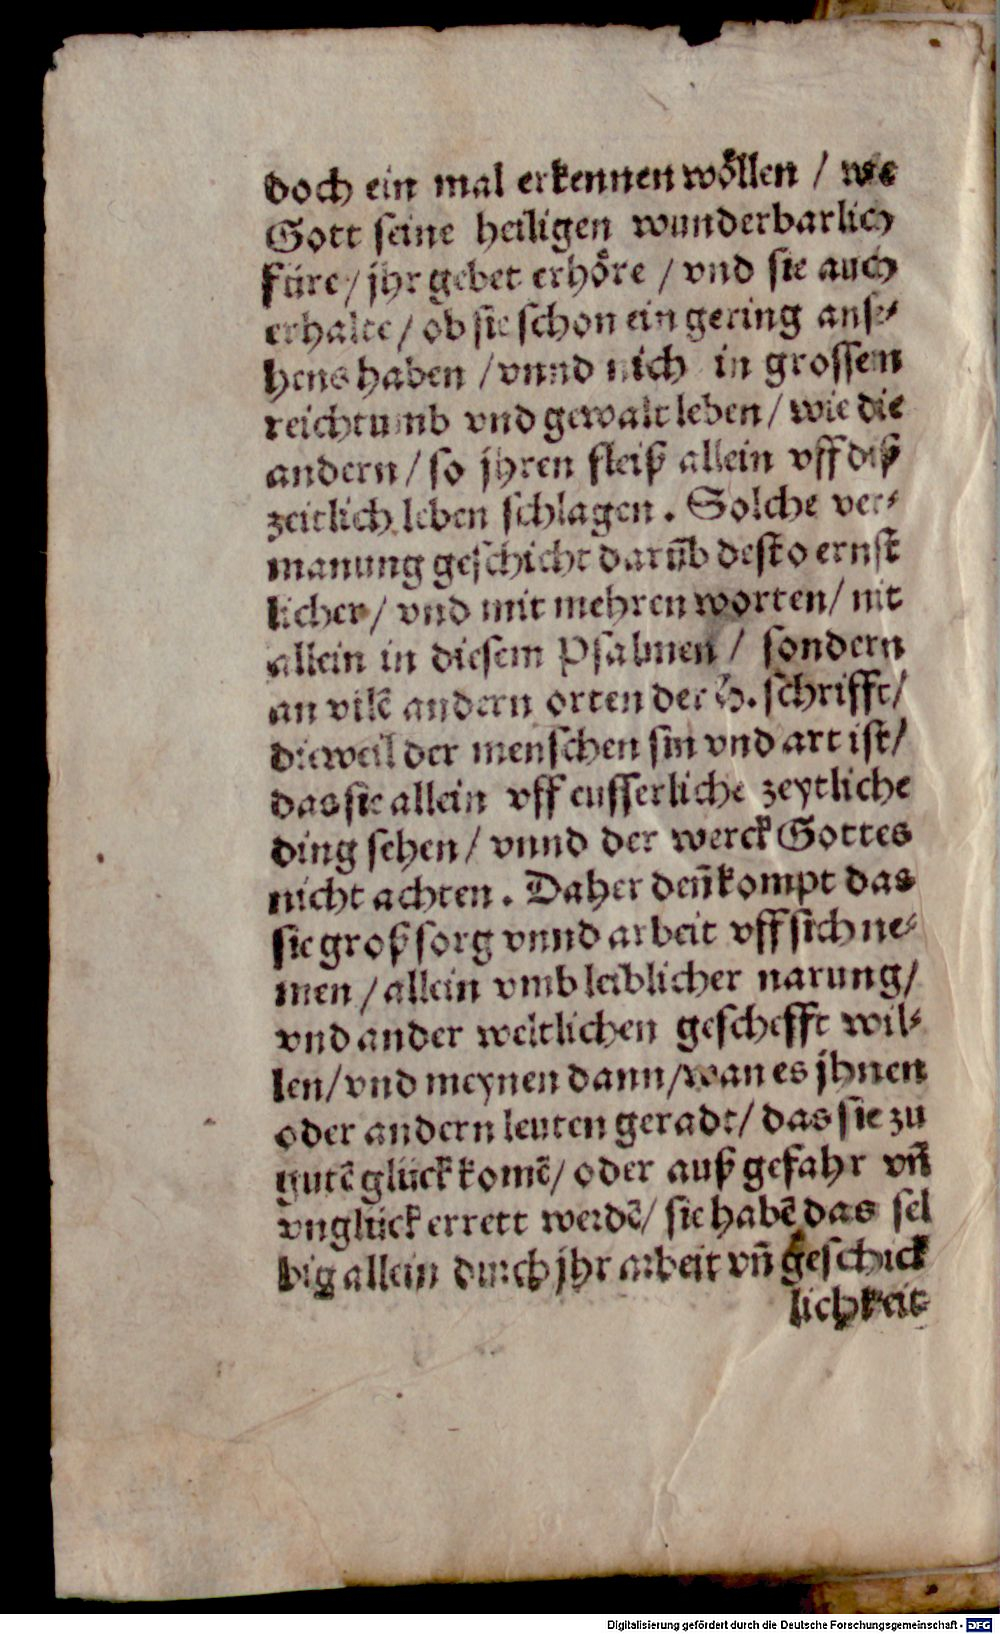 doch ein mal erkennen wöllen / wie
Gott seine heiligen wunderbarlich
füre / jhr gebet erhöre / vnd sie auch
erhalte / ob sie schon ein gering anse⸗
hens haben / vnnd nich in grossem
reichtumb vnd gewalt leben / wie die
andern / so jhren fleiß allein vff diß
zeitlich leben schlagen. Solche ver⸗
manung geschicht darüb desto ernst
licher / vnd mit mehren worten / nit
allein in diesem Psalmen / sondern
an vilē andern orten der H. schrifft /
dieweil der menschen sin vnd art ist /
das sie allein vff eusserliche zeytliche
ding sehen / vnnd der werck Gottes
nicht achten. Daher den̄ kompt das
sie groß sorg vnnd arbeit vff sich ne⸗
men / allein vmb leiblicher narung /
vnd ander weltlichen geschefft wil⸗
len / vnd meynen dann / wan es jhnen
oder andern leuten geradt / das sie zu
gutē glück komē / oder auß gefahr vn̄
vnglück errett werdē / sie habē das sel
big allein durch jhr arbeit vn̄ geschick
lichkeit⸗
Digitalisierung gefördert durch die Deutsche Forschungsgemeinschaft - DFG